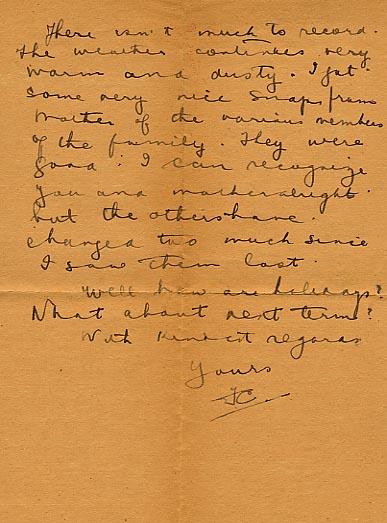 There isn't much to record.
The weather continues very
warm and dusty. I got
some very nice snaps from
Mother of the various members
of the family. They were
good. I can recognize
you and mother alright.
but the others have.
changed two much since
I saw them last.
Well how are holidays?
What about next term?
With kindest regards
Yours